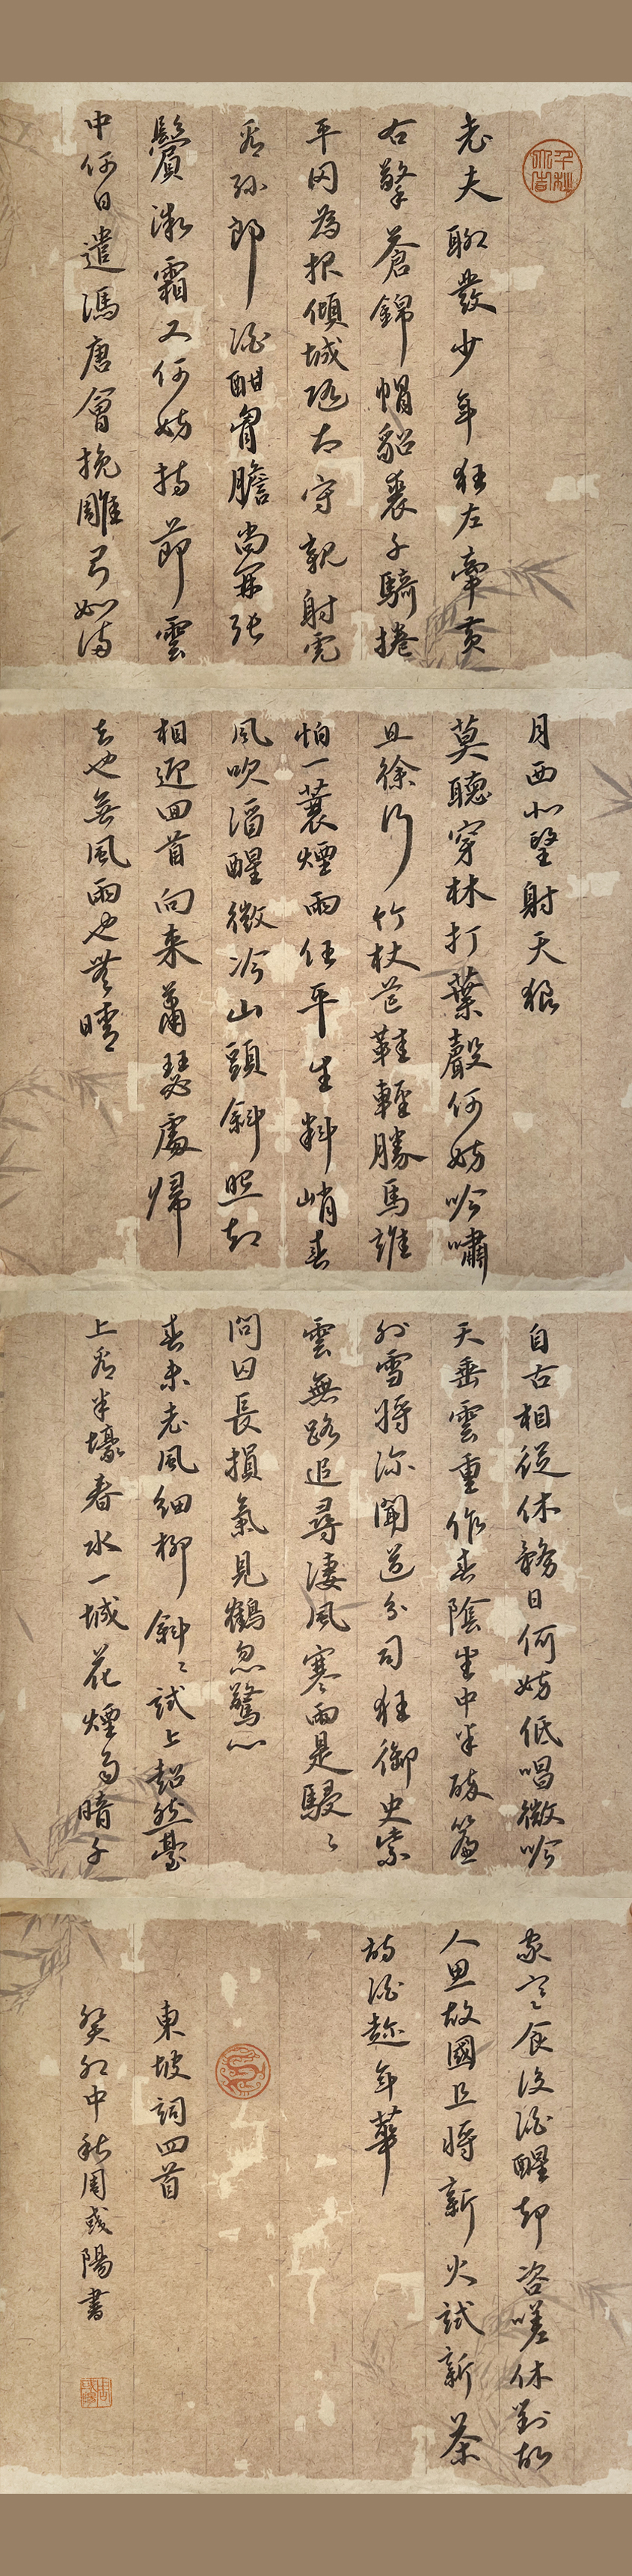 老夫聊發少年狂左牽黄
右擎蒼錦帽貂裘千騎捲
平冈為报傾城随太守親射虎
看孫郎酒酣胷膽尚開张
鬢微霜又何妨持節雲
中何日遣馮唐會挽雕弓如满
月西北望射天狼
莫聽穿林打葉聲何妨吟嘯
且徐行竹杖芒鞋輕勝馬誰
怕一蓑煙雨任平生料峭春
風吹酒醒微冷山頭斜照却
相迎回首向来蕭瑟處歸
去也無風雨也無晴
自古相從休務日何妨低唱微吟
天垂雲重作春陰坐中半醉簾
外雪將深聞道分司狂御史紫
雲無路追尋凄風寒雨是駸〻
問囚長損氣見鶴忽驚心
春未老風細柳斜〻試上超然臺
上看半壕春水一城花煙雨暗千
家寒食後酒醒却咨嗟休對故
人思故國且將新火試新茶
詩酒趁年華
東坡詞四首
癸卯中秋周彧陽書